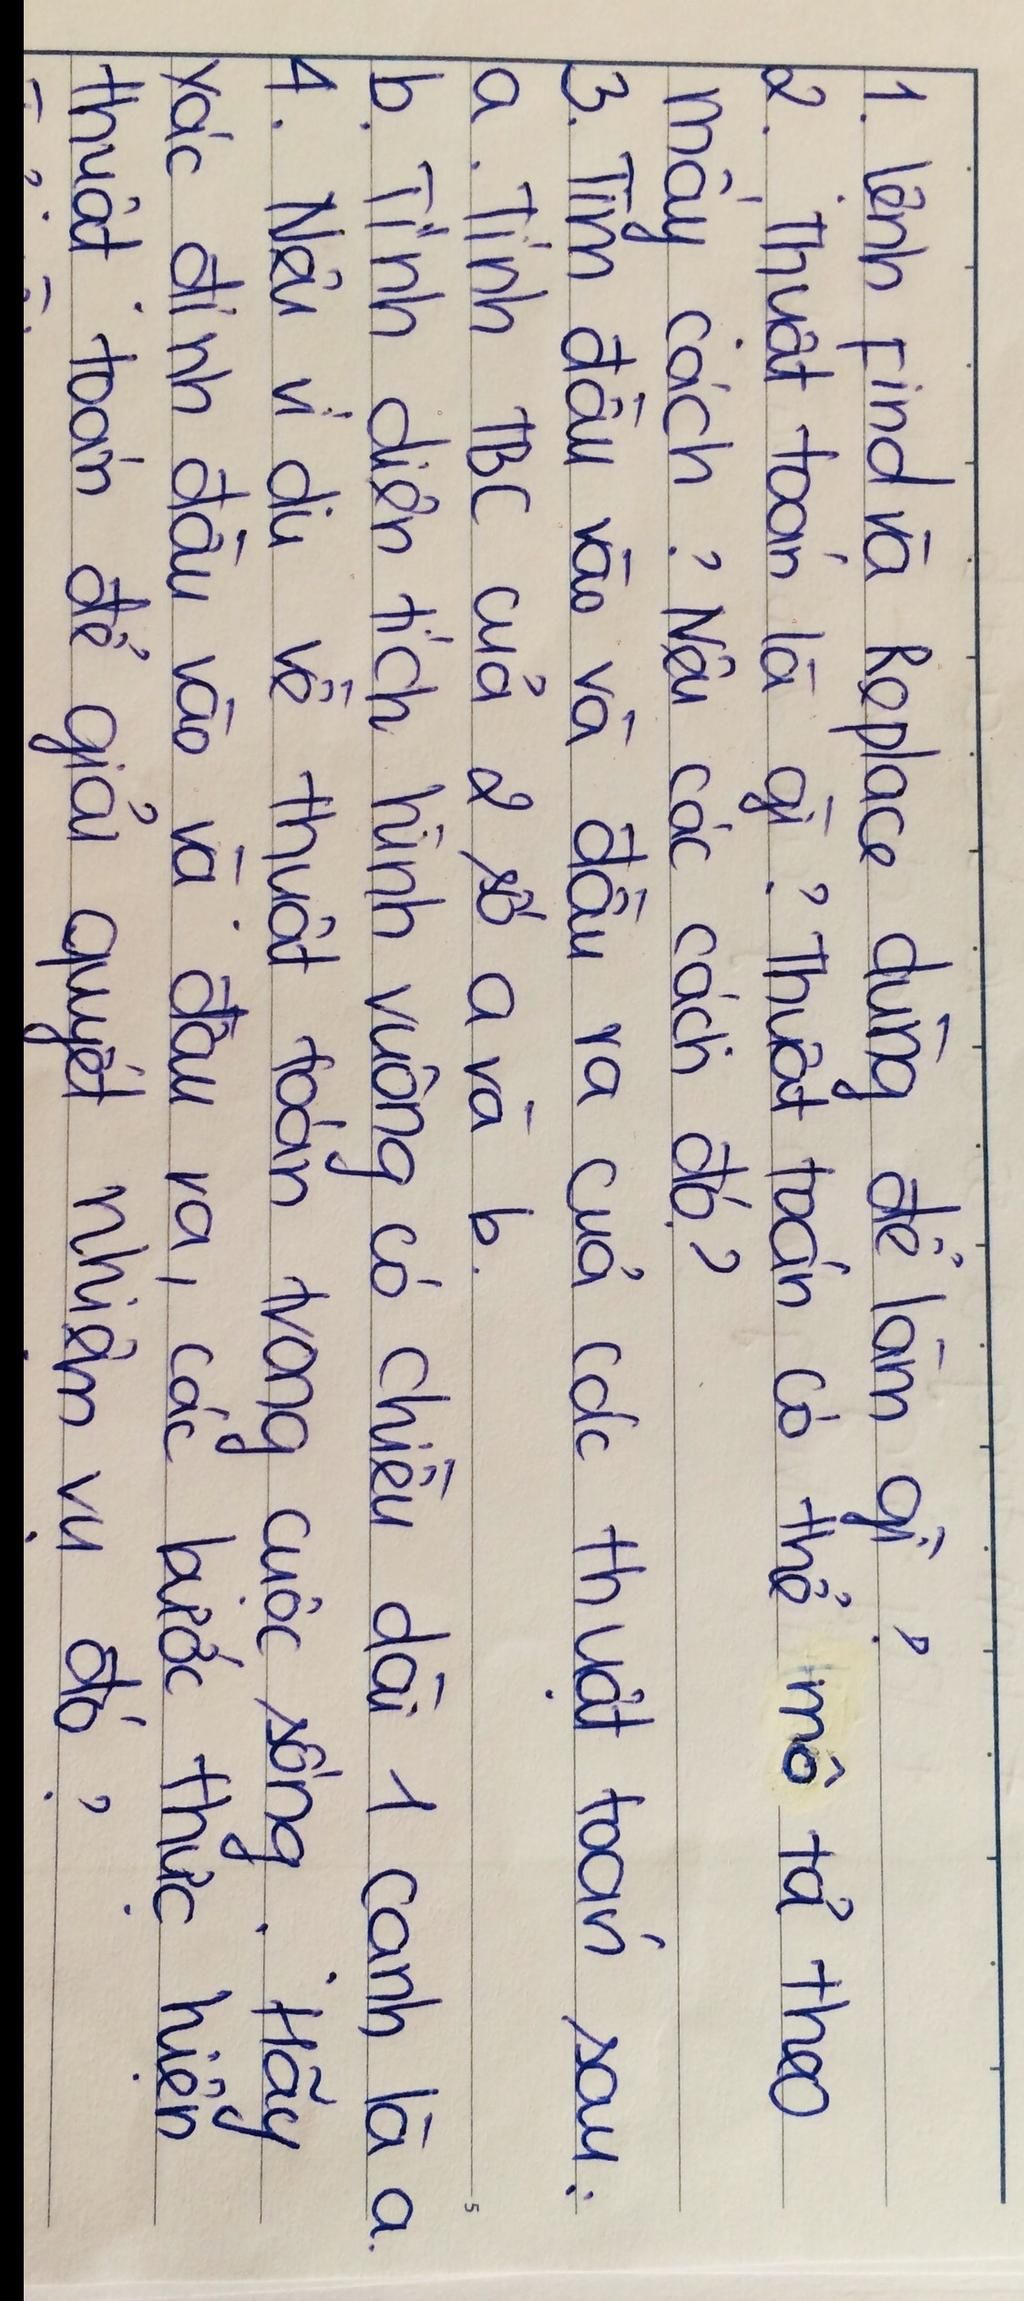 1. Lệnh Find và Replace dùng để làm gì?
2. Thuật toán là gì? Thuật toán có thể mô tả theo
mấy cách? Nêu các cách đó?
3. Tìm đầu vào và đầu ra của các thuật toán sau:
a. Tính TBC của 2 số a và b.
b. Tính diện tích hình vuông có chiều dài 1 cạnh là a.
4. Nêu ví dụ về thuật toán trong cuộc sống. Hãy
xác định đầu vào và đầu ra, các bước thực hiện
thuật toán để giải quyết nhiệm vụ đó?
5